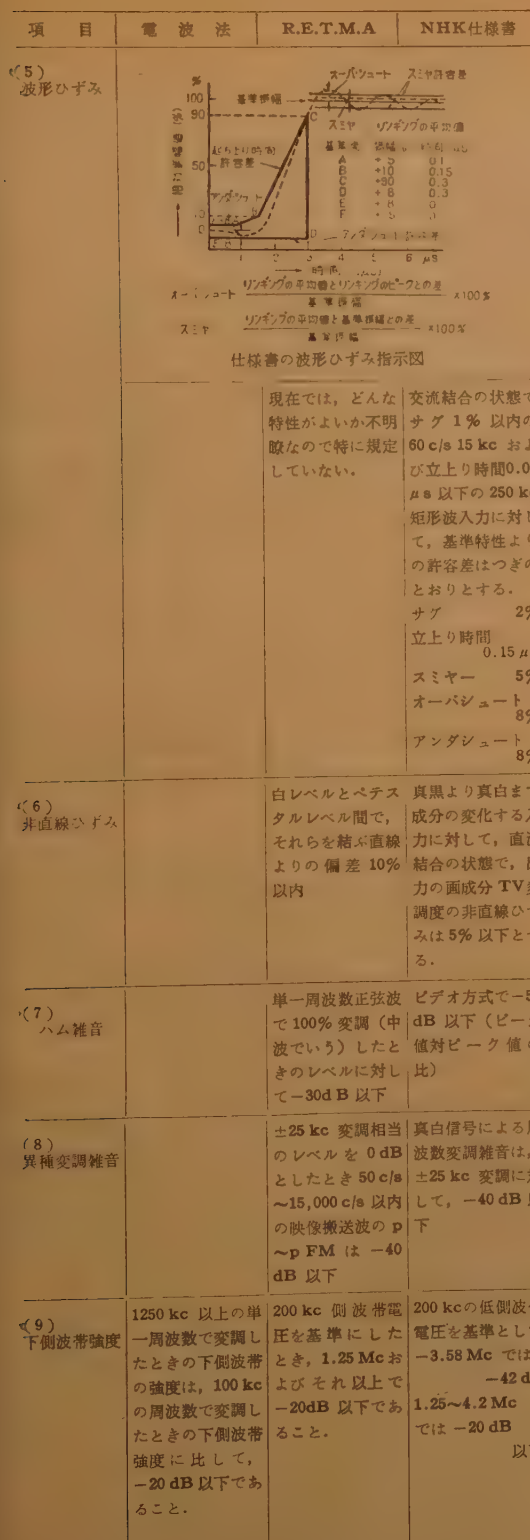 項　目　電　波　法　R.E.T.M.A　NHK仕様書
(5)
波形ひずみ
%
オーバシュート　スミヤ許容差
100　基準振幅
90
C
スミヤ　リンギングの平均値
立ち上り時間
許容差
50
A　+5　0.1
B　+10　0.15
C　+90　0.3
D　+8　0.3
E　+8
F　+5
アンダシュート
0
D
1　2　3　4　5　6　μs
オーバシュート　リンギングの平均値とリンギングのピークとの差　×100%
基準振幅
スミヤ　リンギングの平均値と基準振幅との差　×100%
基準振幅
仕様書の波形ひずみ指示図
現在では，どんな
特性がよいか不明
瞭なので特に規定
していない．
交流結合の状態で
サグ 1% 以内の
60 c/s 15 kc およ
び立上り時間0.0
μs 以下の 250 k
矩形波入力に対し
て，基準特性より
の許容差はつぎの
とおりとする．
サグ　2%
立上り時間
0.15 μ
スミヤー　5%
オーバシュート
8%
アンダシュート
8%
(6)
非直線ひずみ
白レベルとペデス
タルレベル間で，
それらを結ぶ直線
よりの偏差 10%
以内
真黒より真白まで
成分の変化する入
力に対して，直流
結合の状態で，出
力の画成分 TV
調度の非直線ひず
みは 5% 以下とす
る．
(7)
ハム雑音
単一周波数正弦波
で 100% 変調（中
波でいう）したと
きのレベルに対し
て−30d B 以下
ビデオ方式で−5
dB 以下（ピーク
値対ピーク値の
比）
(8)
異種変調雑音
±25 kc 変調相当
のレベルを 0 dB
としたとき 50 c/s
〜15,000 c/s 以内
の映像搬送波の p
〜p FM は −40
dB 以下
真白信号による周
波数変調雑音は，
±25 kc 変調に対
して，−40 dB 以
下
(9)
下側波帯強度
1250 kc 以上の単
一周波数で変調し
たときの下側波帯
の強度は，100 kc
の周波数で変調し
たときの下側波帯
強度に比して，
−20 dB 以下であ
ること．
200 kc 側波帯電
圧を基準にした
とき，1.25 Mc お
よびそれ以上で
−20dB 以下であ
ること．
200 kcの低側波
電圧を基準とし
−3.58 Mc では
−42 d
1.25〜4.2 Mc
では −20 dB
以